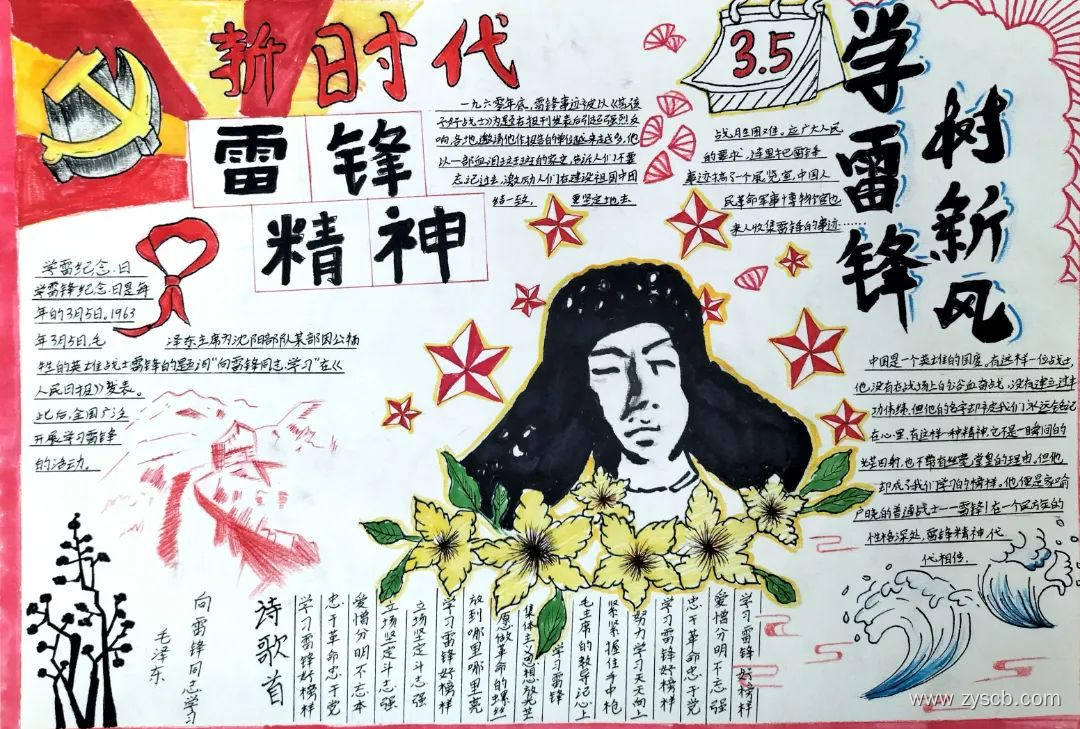 新时代
雷锋
精神
3.5
学雷锋
树新风
一九六零年底,雷锋事迹被以《苦孩
子好战士》为题在报刊发表后引起强烈反
响,各地邀请他作报告的单位越来越多,他
以一部血泪
告诉人们不要
忘记过去,激励人们在建设祖国中团
结一致,更坚定地去
战月生团
应广大人民
的要求,
里把雷锋
事迹搞了个展览室,中国人
民革命军事博物馆也
来人收集雷锋的事迹……
学雷纪念日
学雷锋纪念日是每
年的3月5日。1963
年3月5日,毛泽东主席为沈阳部队某部因公牺
牲的英雄战士雷锋的题词“向雷锋同志学习”在《
人民日报》发表。
此后,全国广泛
开展学习雷锋
的活动。
中国是一个英雄的国度。有这样一位战士,
他没有在战场上的浴血奋战,没有建立过丰
功伟绩,但他的名字却注定我们永远铭记
在心里。有这样一种精神,它不是一瞬间的
光芒四射,也不带有
堂皇的理由。但他
却成了我们学习的榜样。他便是家喻
户晓的普通战士——雷锋!在一个民族的
性格深处,雷锋精神代
代相传。
学习雷锋好榜样
爱憎分明不忘强
忠于革命忠于党
学习雷锋好榜样
努力学习天天向上
紧紧握住手中枪
毛主席的教导记心上
学习雷锋
集体主义思想放光芒
愿做革命的螺丝
放到哪里哪里亮
学习雷锋好榜样
立场坚定斗志强
立场坚定斗志强
爱憎分明不忘本
忠于革命忠于党
学习雷锋好榜样
诗歌一首
向雷锋同志学习
毛泽东
www.zyscb.com